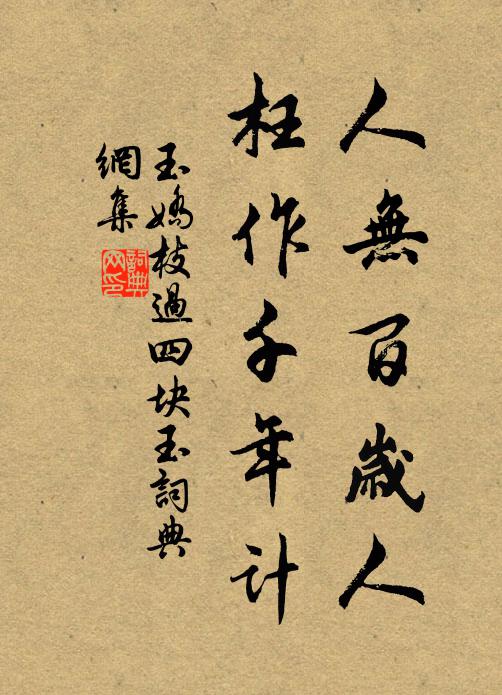 人無百歲人
枉作千年计
玉嬌枝過四块玉詞典
網集
詞典網印